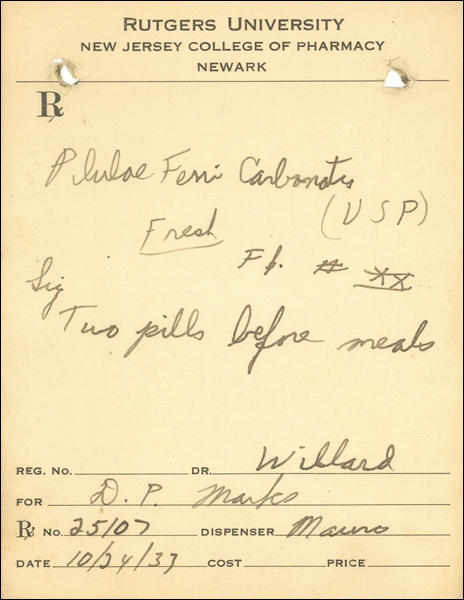 RUTGERS UNIVERSITY
NEW JERSEY COLLEGE OF PHARMACY
NEWARK
℞
Pilulae Ferri Carbonatis
(USP)
Fresh
Ft. # XX
Sig
Two pills before meals
REG. NO. DR. Willard
FOR D. P. Marks
℞ NO. 25107 DISPENSER Mauro
DATE 10/24/37 COST PRICE